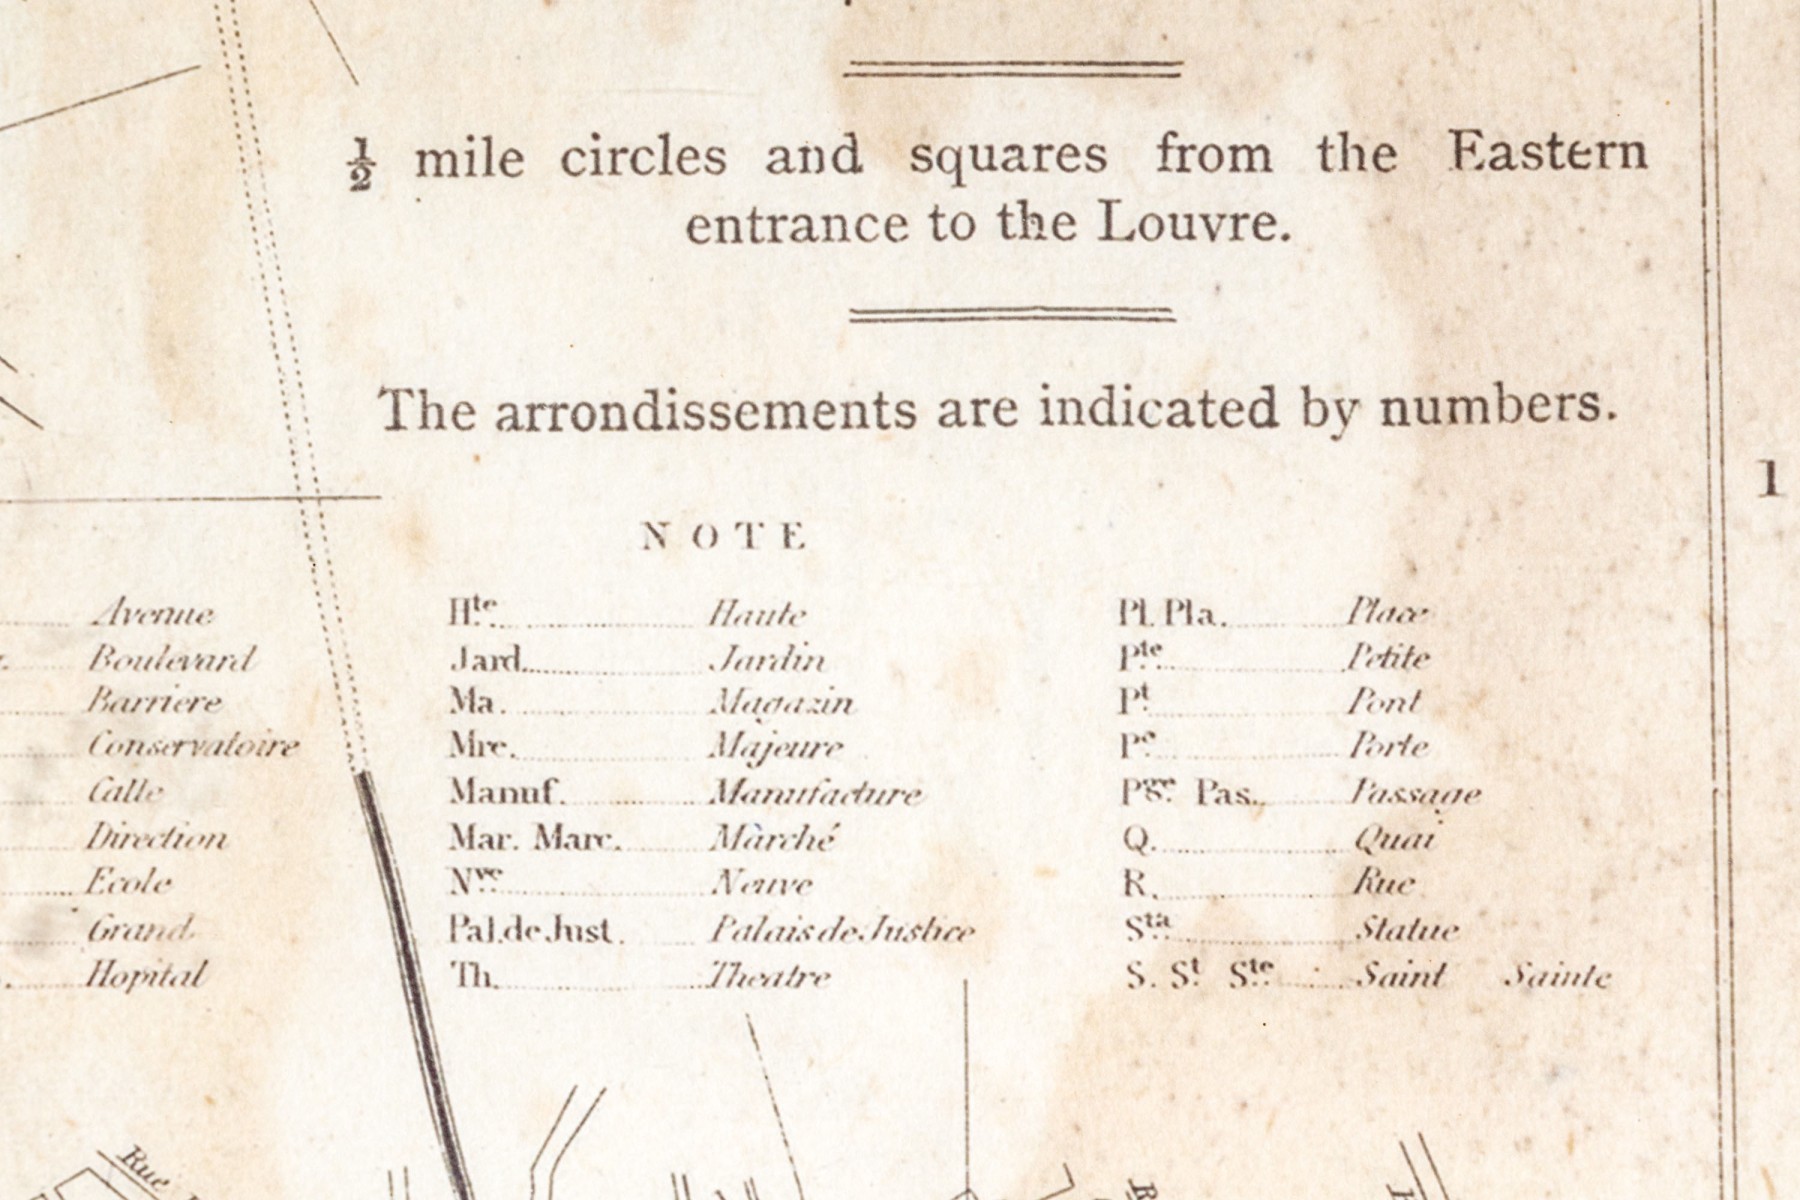 ½ mile circles and squares from the Eastern
entrance to the Louvre.
The arrondissements are indicated by numbers.
1
NOTE
Avenue
Boulevard
Barriere
Conservatoire
Calle
Direction
Ecole
Grand
Hopital
Hte. Haute
Jard. Jardin
Ma. Magazin
Mre. Majeure
Manuf. Manufacture
Mar. Marc. Màrché
Nve. Neuve
Pal. de Just. Palais de Justice
Th. Theatre
Pl. Pla. Place
Pte. Petite
Pt. Pont
Pe. Porte
Pge. Pas. Passage
Q. Quai
R. Rue
Sta. Statue
S. St. Ste. Saint Sainte
Rue